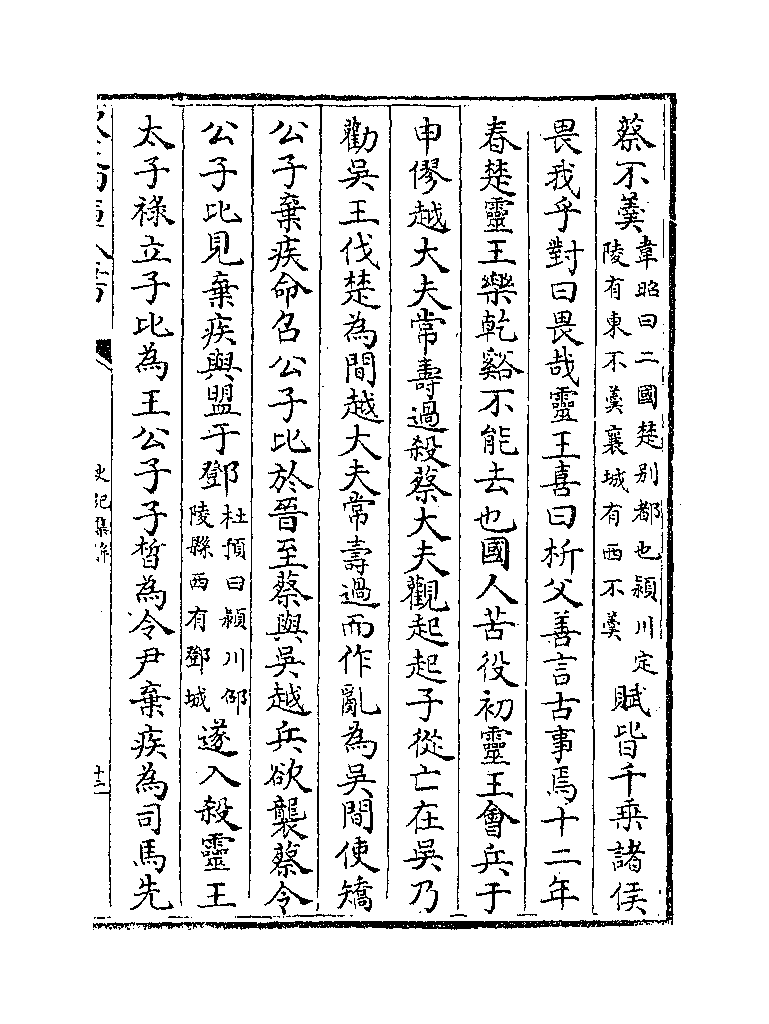 蔡不羹韋昭曰二國楚别都也潁川定陵有東不羹襄城有西不羹賦皆千乘諸侯
畏我乎對曰畏哉靈王喜曰析父善言古事焉十二年
春楚靈王樂乾谿不能去也國人苦役初靈王會兵于
申僇越大夫常壽過殺蔡大夫觀起起子從亡在吳乃
勸吳王伐楚為間越大夫常壽過而作亂為吳間使矯
公子棄疾命召公子比於晉至蔡與吳越兵欲襲蔡令
公子比見棄疾與盟于鄧杜預曰潁川邵陵縣西有鄧城遂入殺靈王
太子祿立子比為王公子子晳為令尹棄疾為司馬先
史記集解
十二